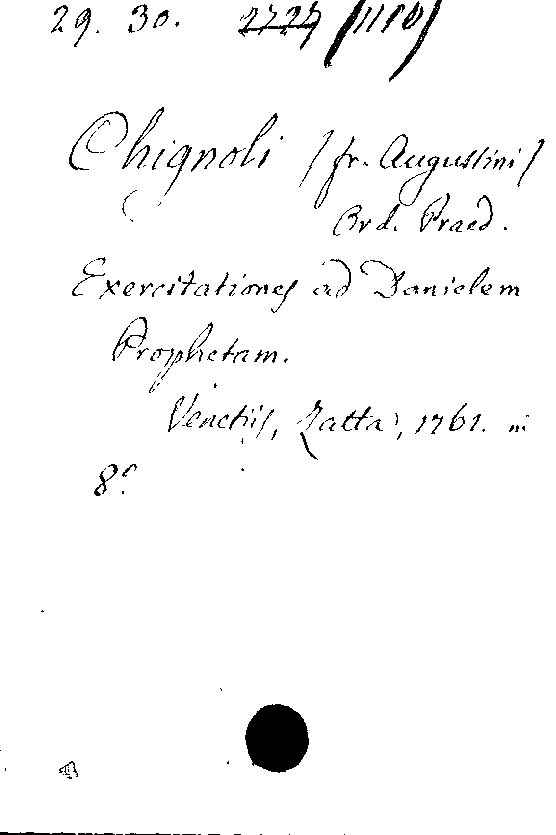 29. 30. 2727
Chignoli (fr. Augustini)
Ord. Praed.
Exercitationes ad Danielem
Prophetam.
Venetiis, Zatta, 1761. in
8º